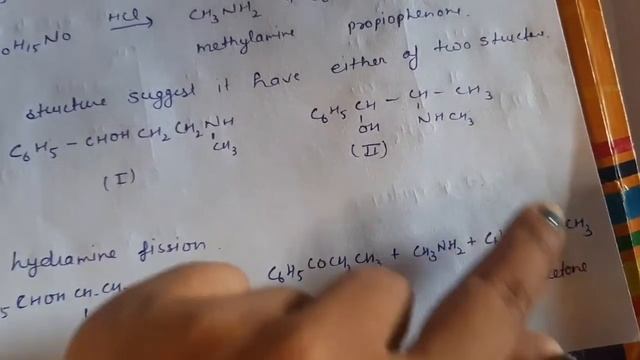 0H15NO HCl→ CH3NH2
methylamine propiophenone.
structure suggest it have either of two structer.
C6H5 – CHOH CH2 CH2 NH
CH3
(I)
C6H5 CH – CH – CH3
OH NHCH3
(II)
hydramine fission.
5 CHOH CH–CH
C6H5 COCH2CH3 + CH3NH2 + C6 CH3
etone